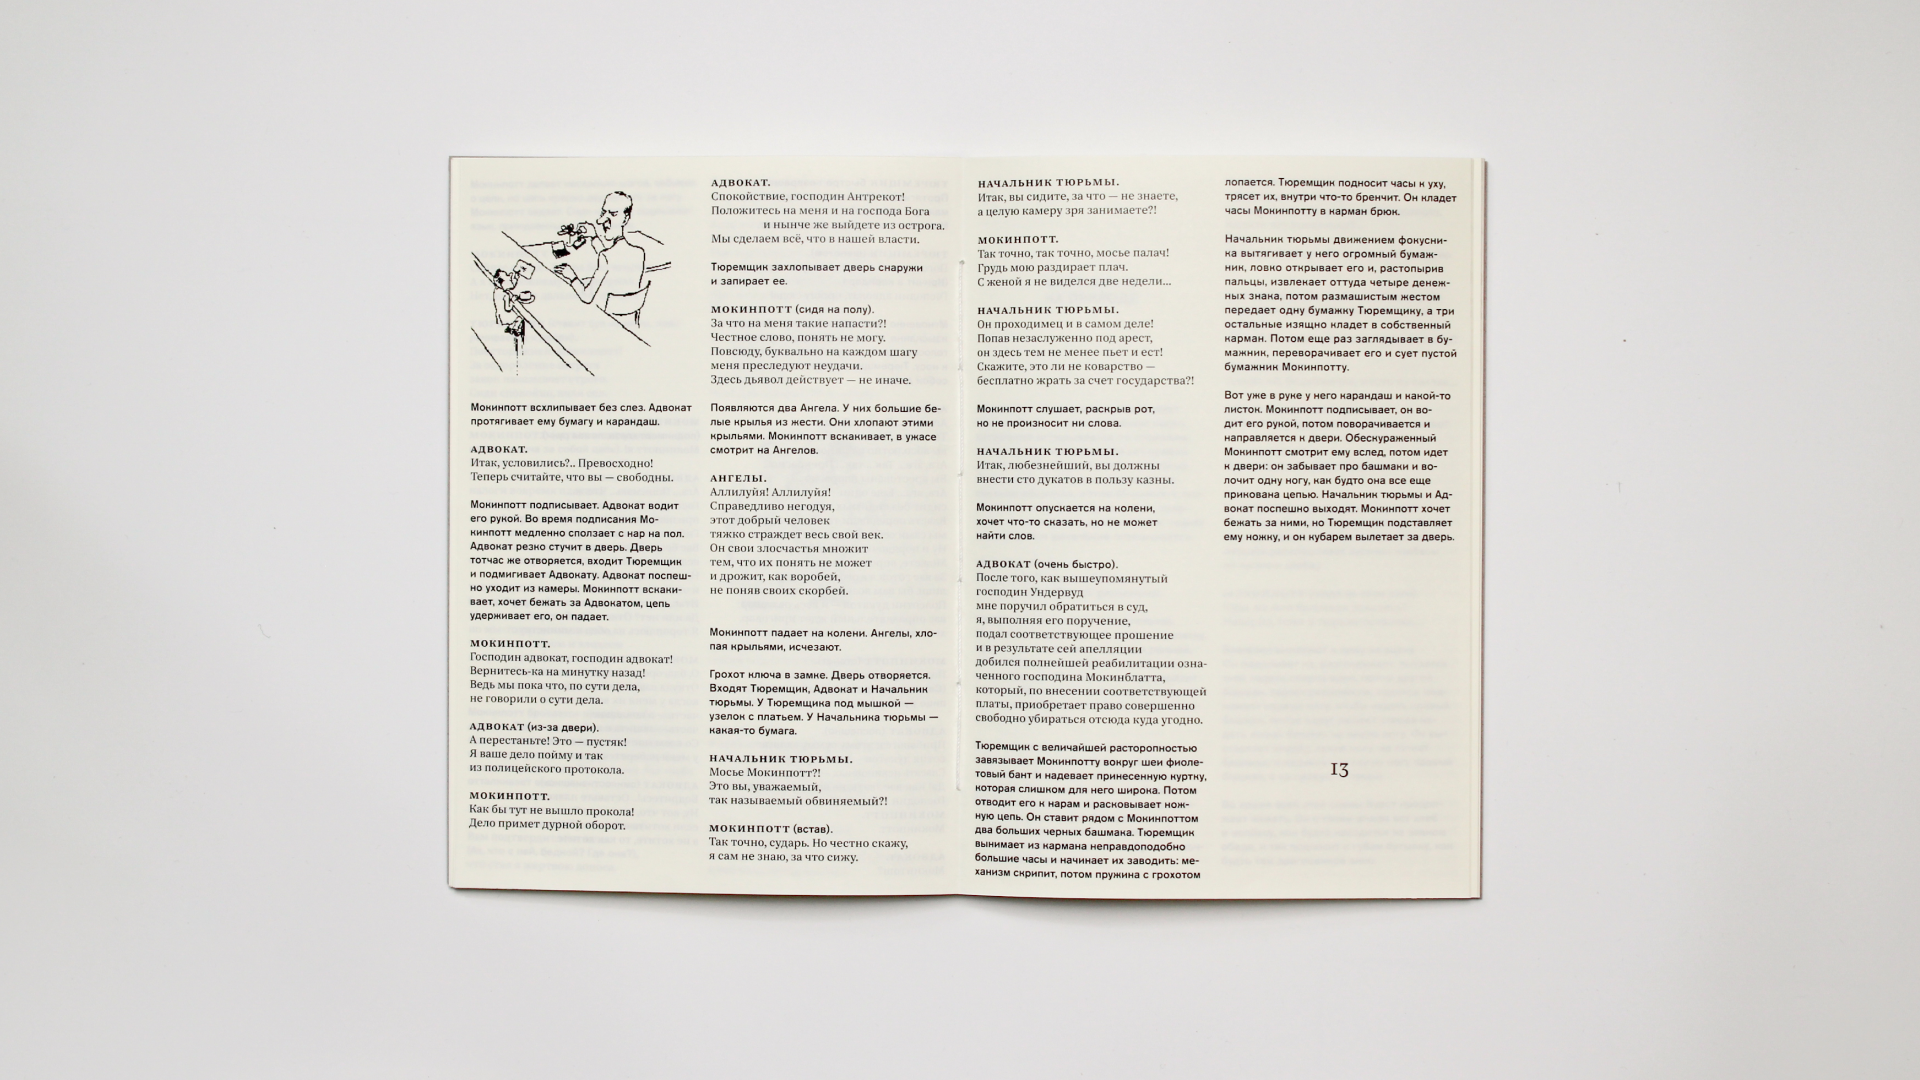 Мокинпотт всхлипывает без слез. Адвокат
протягивает ему бумагу и карандаш.
АДВОКАТ.
Итак, условились?.. Превосходно!
Теперь считайте, что вы — свободны.
Мокинпотт подписывает. Адвокат водит
его рукой. Во время подписания Мо-
кинпотт медленно сползает с нар на пол.
Адвокат резко стучит в дверь. Дверь
тотчас же отворяется, входит Тюремщик
и подмигивает Адвокату. Адвокат поспеш-
но уходит из камеры. Мокинпотт вскаки-
вает, хочет бежать за Адвокатом, цепь
удерживает его, он падает.
МОКИНПОТТ.
Господин адвокат, господин адвокат!
Вернитесь-ка на минутку назад!
Ведь мы пока что, по сути дела,
не говорили о сути дела.
АДВОКАТ (из-за двери).
А перестаньте! Это — пустяк!
Я ваше дело пойму и так
из полицейского протокола.
МОКИНПОТТ.
Как бы тут не вышло прокола!
Дело примет дурной оборот.
АДВОКАТ.
Спокойствие, господин Антрекот!
Положитесь на меня и на господа Бога
и нынче же выйдете из острога.
Мы сделаем всё, что в нашей власти.
Тюремщик захлопывает дверь снаружи
и запирает ее.
МОКИНПОТТ (сидя на полу).
За что на меня такие напасти?!
Честное слово, понять не могу.
Повсюду, буквально на каждом шагу
меня преследуют неудачи.
Здесь дьявол действует — не иначе.
Появляются два Ангела. У них большие бе-
лые крылья из жести. Они хлопают этими
крыльями. Мокинпотт вскакивает, в ужасе
смотрит на Ангелов.
АНГЕЛЫ.
Аллилуйя! Аллилуйя!
Справедливо негодуя,
этот добрый человек
тяжко страждет весь свой век.
Он свои злосчастья множит
тем, что их понять не может
и дрожит, как воробей,
не поняв своих скорбей.
Мокинпотт падает на колени. Ангелы, хло-
пая крыльями, исчезают.
Грохот ключа в замке. Дверь отворяется.
Входят Тюремщик, Адвокат и Начальник
тюрьмы. У Тюремщика под мышкой —
узелок с платьем. У Начальника тюрьмы —
какая-то бумага.
НАЧАЛЬНИК ТЮРЬМЫ.
Мосье Мокинпотт?!
Это вы, уважаемый,
так называемый обвиняемый?!
МОКИНПОТТ (встав).
Так точно, сударь. Но честно скажу,
я сам не знаю, за что сижу.
НАЧАЛЬНИК ТЮРЬМЫ.
Итак, вы сидите, за что — не знаете,
а целую камеру зря занимаете?!
МОКИНПОТТ.
Так точно, так точно, мосье палач!
Грудь мою раздирает плач.
С женой я не виделся две недели...
НАЧАЛЬНИК ТЮРЬМЫ.
Он проходимец и в самом деле!
Попав незаслуженно под арест,
он здесь тем не менее пьет и ест!
Скажите, это ли не коварство —
бесплатно жрать за счет государства?!
Мокинпотт слушает, раскрыв рот,
но не произносит ни слова.
НАЧАЛЬНИК ТЮРЬМЫ.
Итак, любезнейший, вы должны
внести сто дукатов в пользу казны.
Мокинпотт опускается на колени,
хочет что-то сказать, но не может
найти слов.
АДВОКАТ (очень быстро).
После того, как вышеупомянутый
господин Ундервуд
мне поручил обратиться в суд,
я, выполняя его поручение,
подал соответствующее прошение
и в результате сей апелляции
добился полнейшей реабилитации озна-
ченного господина Мокинблатта,
который, по внесении соответствующей
платы, приобретает право совершенно
свободно убираться отсюда куда угодно.
Тюремщик с величайшей расторопностью
завязывает Мокинпотту вокруг шеи фиоле-
товый бант и надевает принесенную куртку,
которая слишком для него широка. Потом
отводит его к нарам и расковывает нож-
ную цепь. Он ставит рядом с Мокинпоттом
два больших черных башмака. Тюремщик
вынимает из кармана неправдоподобно
большие часы и начинает их заводить: ме-
ханизм скрипит, потом пружина с грохотом
лопается. Тюремщик подносит часы к уху,
трясет их, внутри что-то бренчит. Он кладет
часы Мокинпотту в карман брюк.
Начальник тюрьмы движением фокусни-
ка вытягивает у него огромный бумаж-
ник, ловко открывает его и, растопырив
пальцы, извлекает оттуда четыре денеж-
ных знака, потом размашистым жестом
передает одну бумажку Тюремщику, а три
остальные изящно кладет в собственный
карман. Потом еще раз заглядывает в бу-
мажник, переворачивает его и сует пустой
бумажник Мокинпотту.
Вот уже в руке у него карандаш и какой-то
листок. Мокинпотт подписывает, он во-
дит его рукой, потом поворачивается и
направляется к двери. Обескураженный
Мокинпотт смотрит ему вслед, потом идет
к двери: он забывает про башмаки и во-
лочит одну ногу, как будто она все еще
прикована цепью. Начальник тюрьмы и Ад-
вокат поспешно выходят. Мокинпотт хочет
бежать за ними, но Тюремщик подставляет
ему ножку, и он кубарем вылетает за дверь.
13